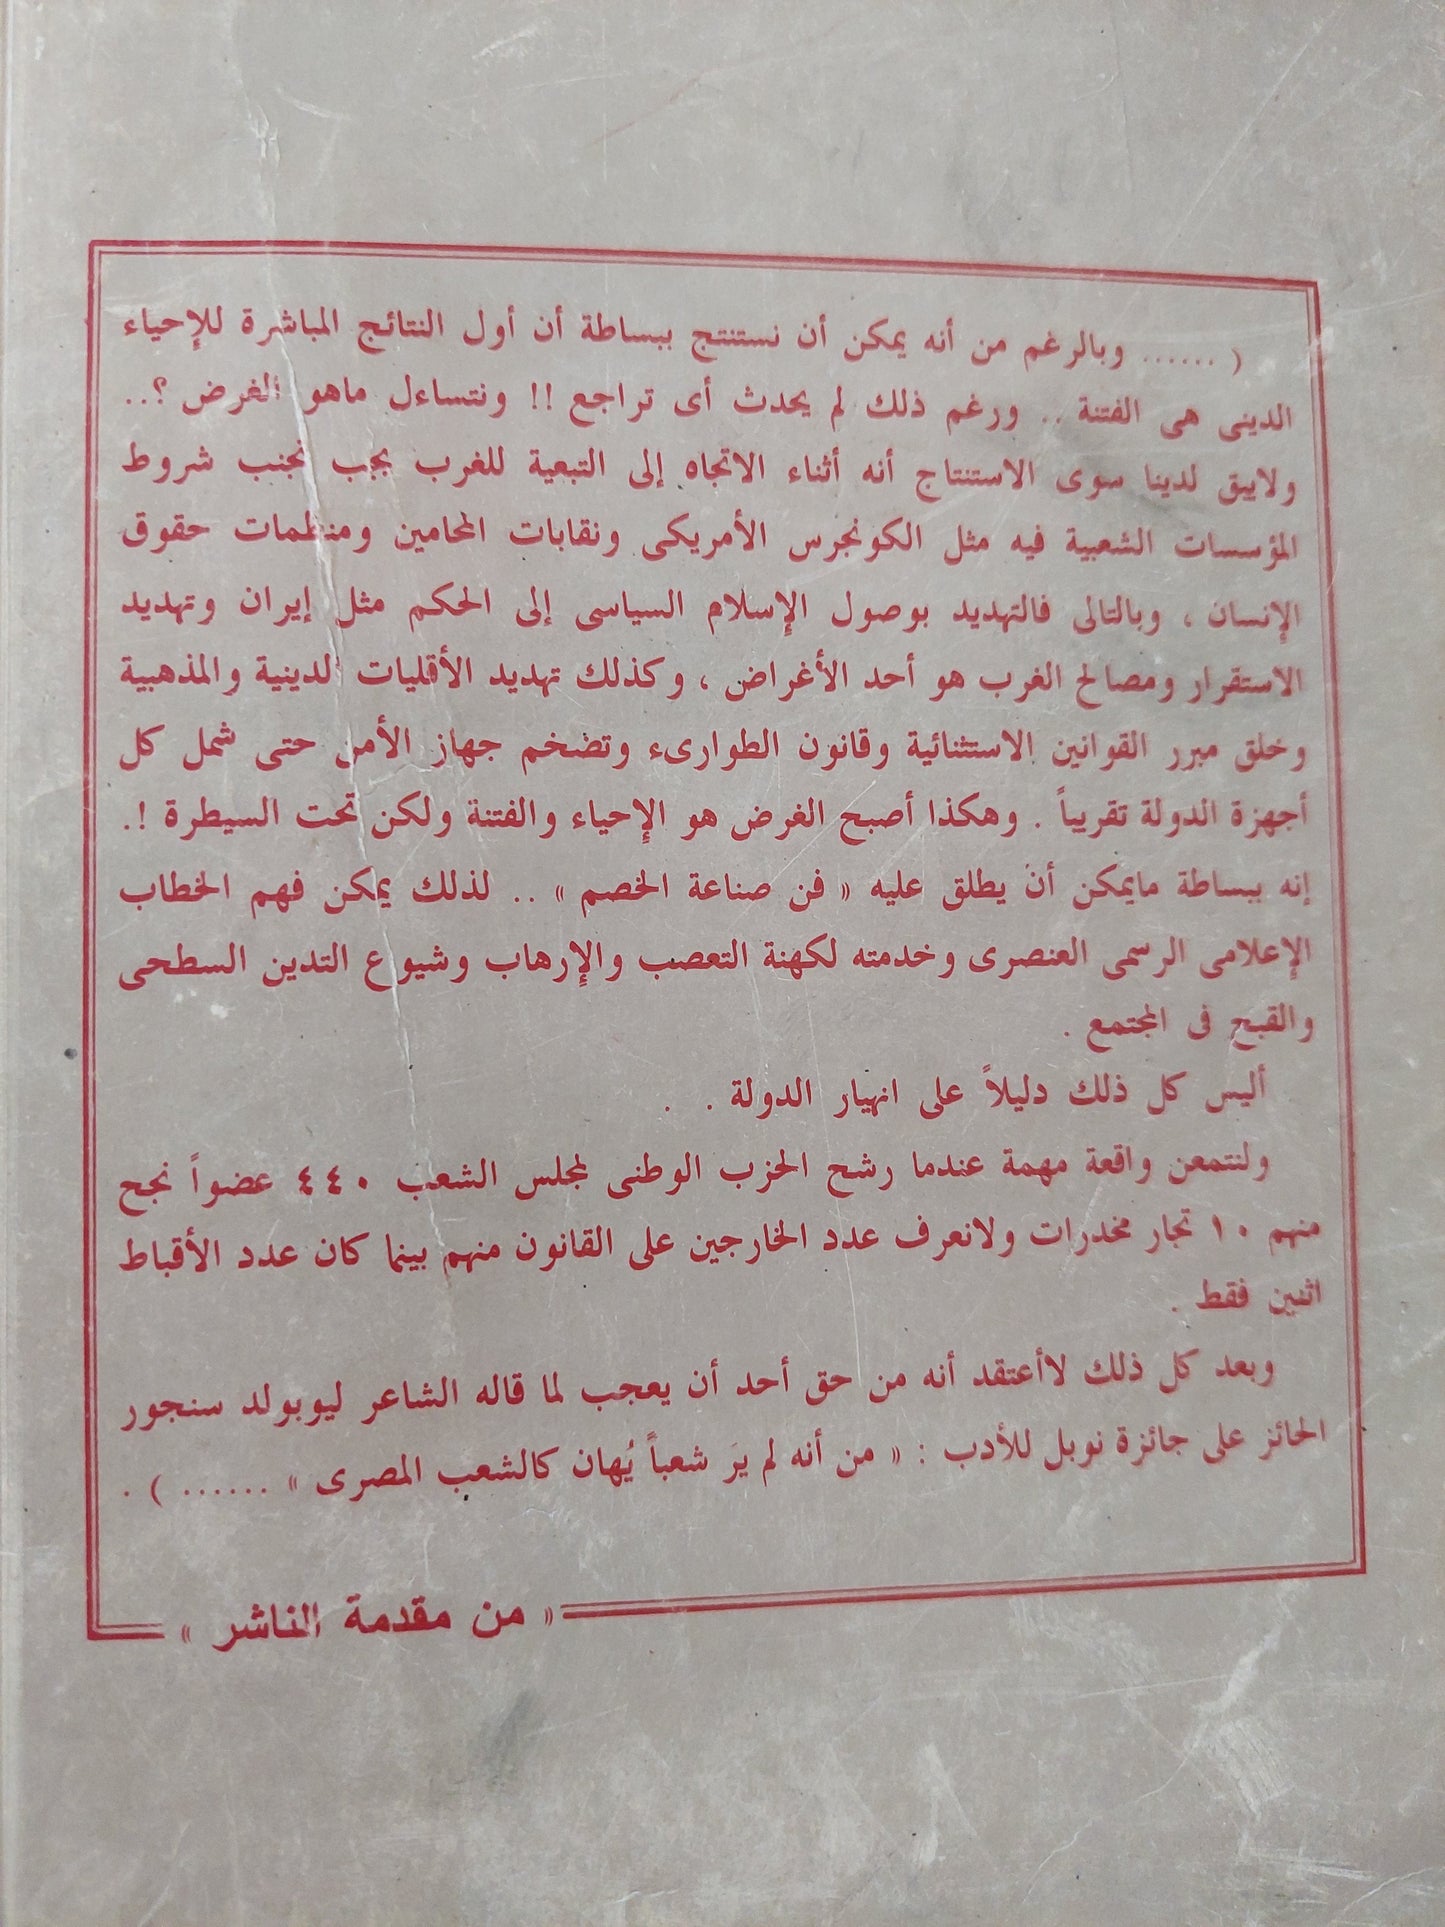 ( ...... وبالرغم من أنه يمكن أن نستنتج ببساطة أن أول النتائج المباشرة للإحياء
الدينى هى الفتنة .. ورغم ذلك لم يحدث أى تراجع !! ونتساءل ماهو الغرض ؟..
ولايبق لدينا سوى الاستنتاج أنه أثناء الاتجاه إلى التبعية للغرب يجب تجنب شروط
المؤسسات الشعبية فيه مثل الكونجرس الأمريكى ونقابات المحامين ومنظمات حقوق
الإنسان ، وبالتالى فالتهديد بوصول الإسلام السياسى إلى الحكم مثل إيران وتهديد
الاستقرار ومصالح الغرب هو أحد الأغراض ، وكذلك تهديد الأقليات الدينية والمذهبية
وخلق مبرر القوانين الاستثنائية وقانون الطوارىء وتضخم جهاز الأمن حتى شمل كل
أجهزة الدولة تقريباً . وهكذا أصبح الغرض هو الإحياء والفتنة ولكن تحت السيطرة !.
إنه ببساطة مايمكن أن يطلق عليه « فن صناعة الخصم » .. لذلك يمكن فهم الخطاب
الإعلامى الرسمى العنصرى وخدمته لكهنة التعصب والإرهاب وشيوع التدين السطحى
والقبح فى المجتمع .
أليس كل ذلك دليلاً على انهيار الدولة . .
ولنتمعن واقعة مهمة عندما رشح الحزب الوطنى لمجلس الشعب ٤٤٠ عضواً نجح
منهم ١٠ تجار مخدرات ولانعرف عدد الخارجين على القانون منهم بينما كان عدد الأقباط
اثنين فقط .
وبعد كل ذلك لاأعتقد أنه من حق أحد أن يعجب لما قاله الشاعر ليوبولد سنجور
الحائز على جائزة نوبل للأدب : « من أنه لم يَر شعباً يُهان كالشعب المصرى » ...... ) .
« من مقدمة الناشر »